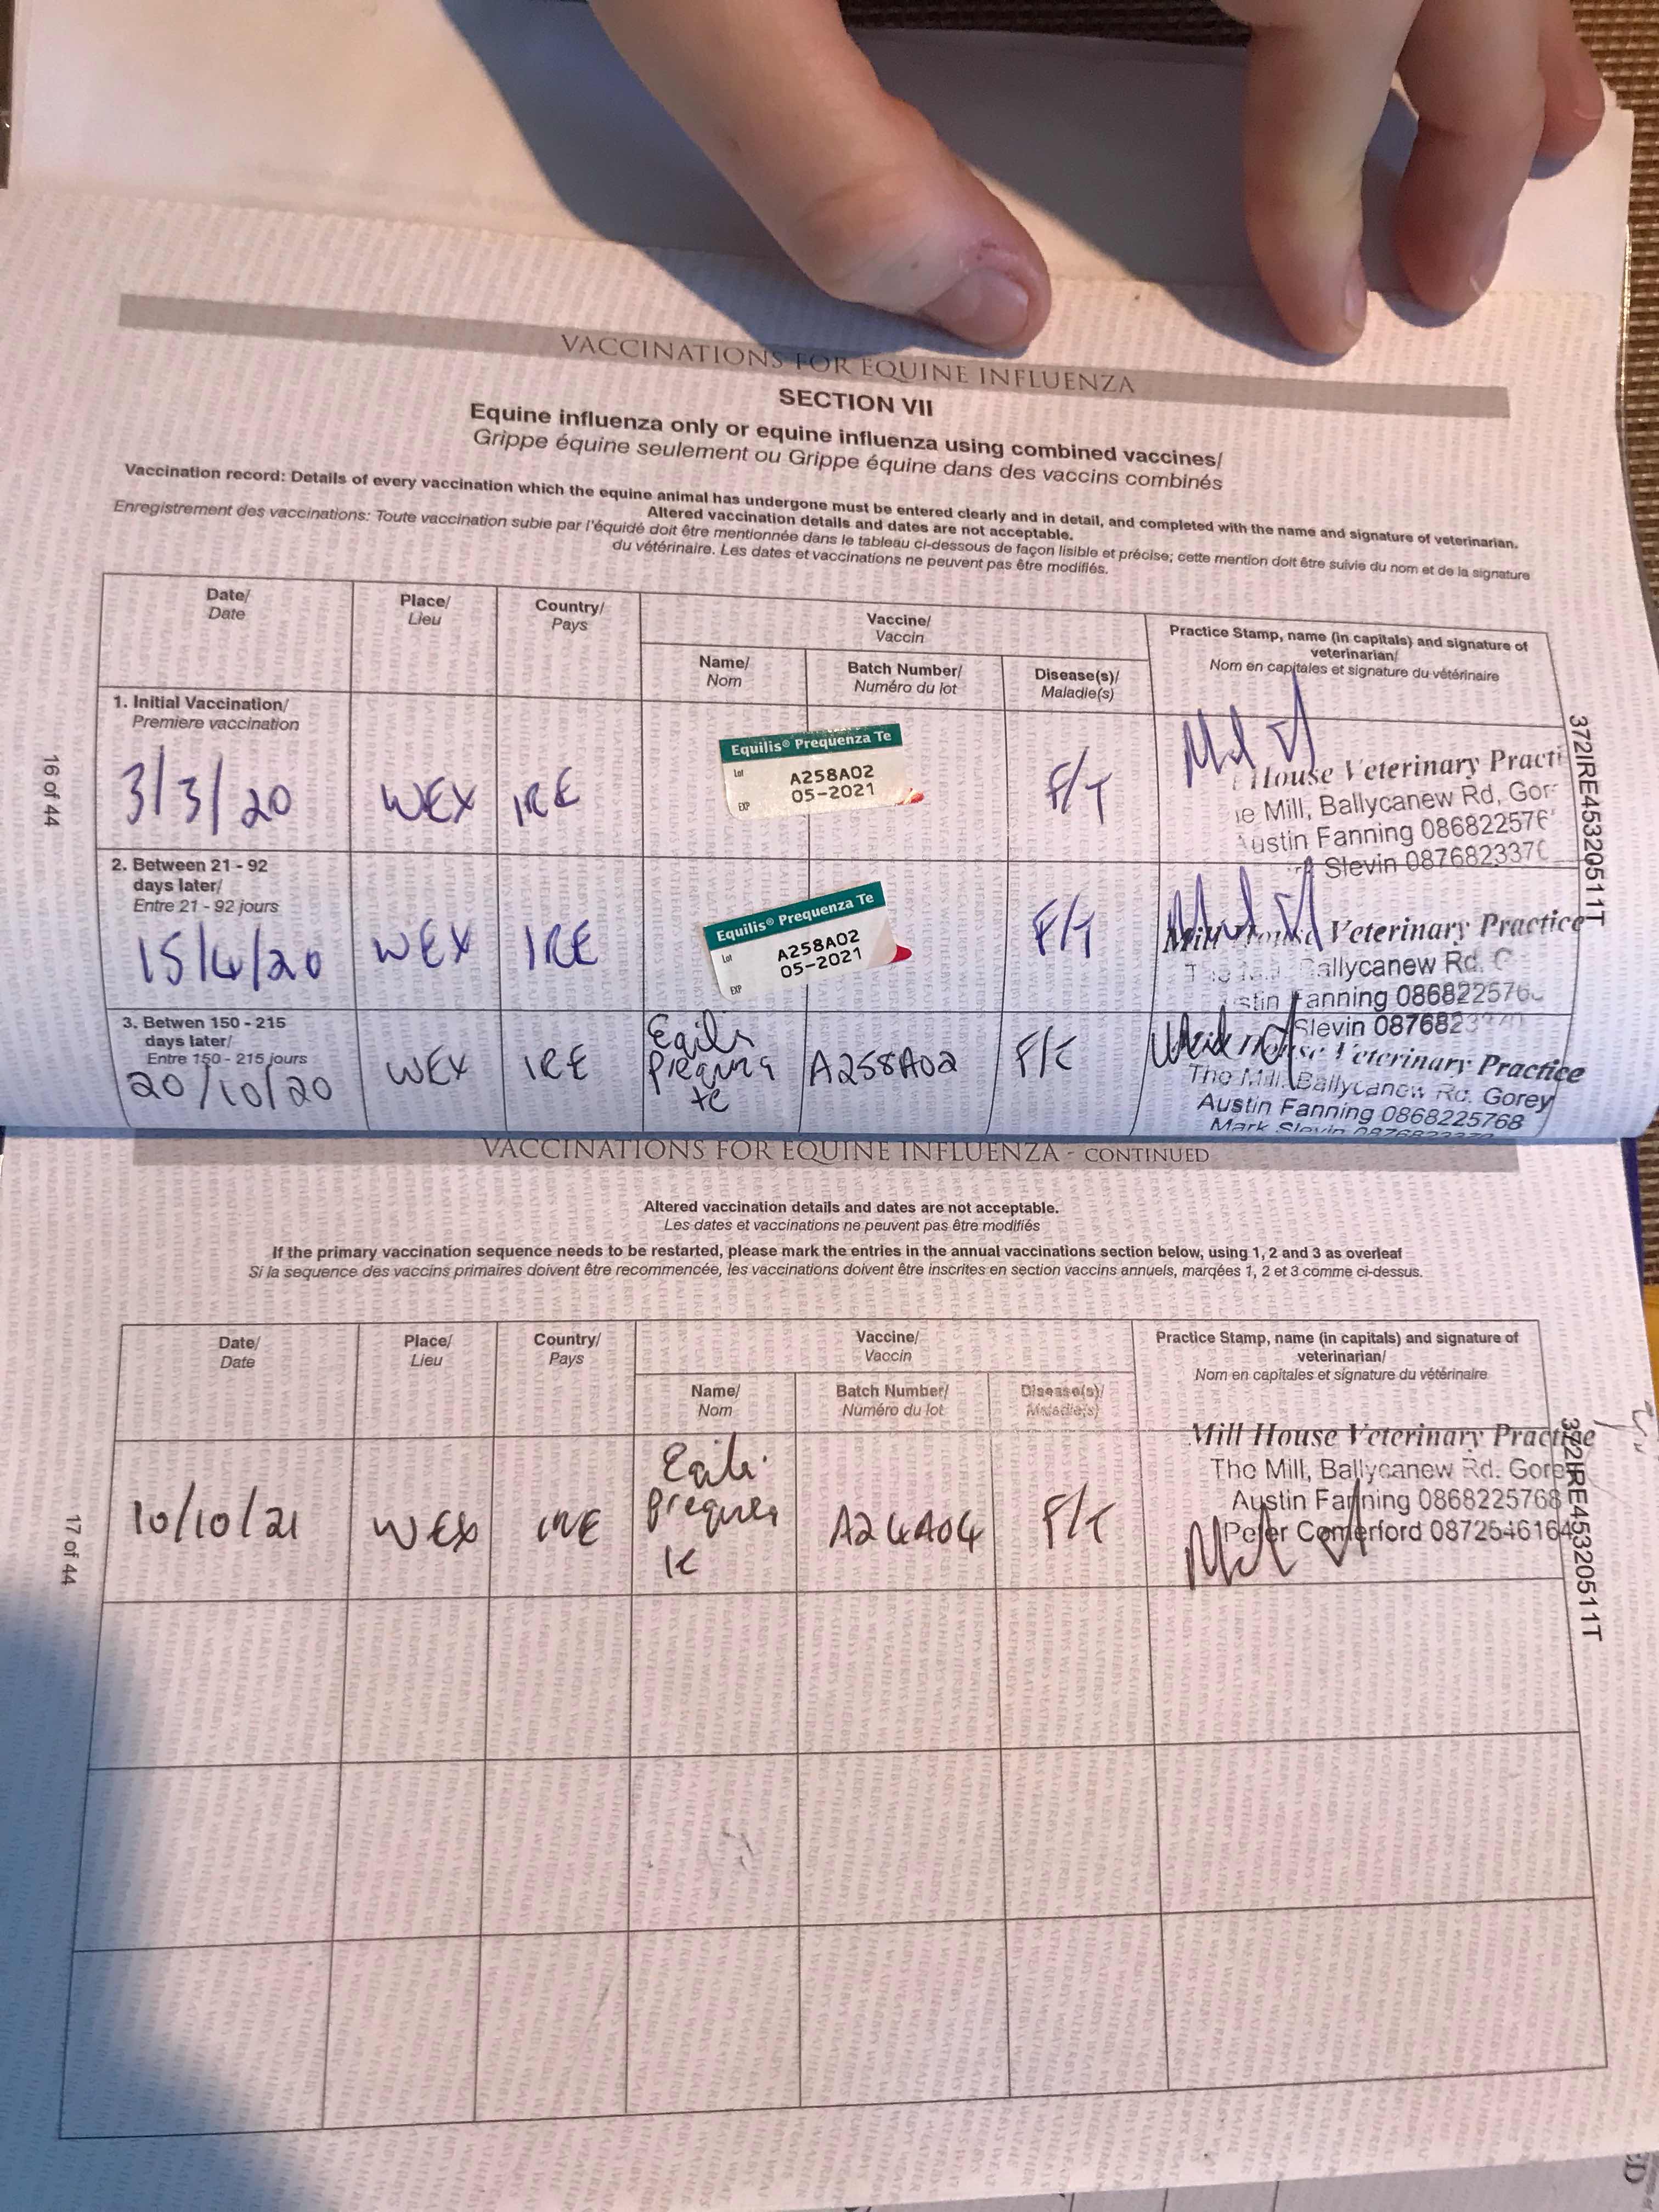 VACCINATIONS FOR EQUINE INFLUENZA
SECTION VII
Equine influenza only or equine influenza using combined vaccines/
Grippe équine seulement ou Grippe équine dans des vaccins combinés
Vaccination record: Details of every vaccination which the equine animal has undergone must be entered clearly and in detail, and completed with the name and signature of veterinarian.
Altered vaccination details and dates are not acceptable.
Enregistrement des vaccinations: Toute vaccination subie par l'équidé doit être mentionnée dans le tableau ci-dessous de façon lisible et précise; cette mention doit être suivie du nom et de la signature
du vétérinaire. Les dates et vaccinations ne peuvent pas être modifiés.
Date/
Date
Place/
Lieu
Country/
Pays
Vaccine/
Vaccin
Name/
Nom
Batch Number/
Numéro du lot
Disease(s)/
Maladie(s)
Practice Stamp, name (in capitals) and signature of
veterinarian/
Nom en capitales et signature du vétérinaire
1. Initial Vaccination/
Premiere vaccination
3/3/20
WEX
IRE
Equilis® Prequenza Te
Lot
A258A02
05-2021
EXP
F/T
House Veterinary Practi
e Mill, Ballycanew Rd, Gor
ustin Fanning 086822576
Slevin 087682337
2. Between 21 - 92
days later/
Entre 21 - 92 jours
15/4/20
WEX
IRE
Equilis® Prequenza Te
Lot
A258A02
05-2021
EXP
F/T
Mill House Veterinary Practice
Ballycanew Rd.
stin Fanning 086822576
Slevin 087682
3. Betwen 150 - 215
days later/
Entre 150 - 215 jours
20/10/20
WEX
IRE
A258A02
F/T
Veterinary Practice
The Mill, Ballycanew Rd. Gorey
Austin Fanning 0868225768
Mark Slevin
372IRE45320511T
16 of 44
VACCINATIONS FOR EQUINE INFLUENZA - CONTINUED
Altered vaccination details and dates are not acceptable.
Les dates et vaccinations ne peuvent pas être modifiés
If the primary vaccination sequence needs to be restarted, please mark the entries in the annual vaccinations section below, using 1, 2 and 3 as overleaf
Si la sequence des vaccins primaires doivent être recommencée, les vaccinations doivent être inscrites en section vaccins annuels, marqées 1, 2 et 3 comme ci-dessus.
Date/
Date
Place/
Lieu
Country/
Pays
Vaccine/
Vaccin
Name/
Nom
Batch Number/
Numéro du lot
Disease(s)/
Maladie(s)
Practice Stamp, name (in capitals) and signature of
veterinarian/
Nom en capitales et signature du vétérinaire
10/10/21
WEX
IRE
A24A04
F/T
Mill House Veterinary Practice
The Mill, Ballycanew Rd. Gorey
Austin Fanning 0868225768
Peter Comerford 0872546164
372IRE45320511T
17 of 44